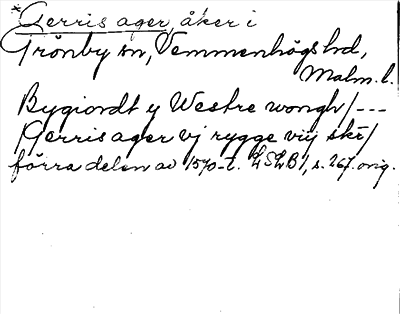 *Gerris ager, åker i
Grönby sn, Vemmenhögs hd,
Malm. l.
Bygiordt y Westre wongh/---
/Gerris ager vj rygge viij ske/
förra delen av 1570-t. LSLB 1, s. 267. orig.